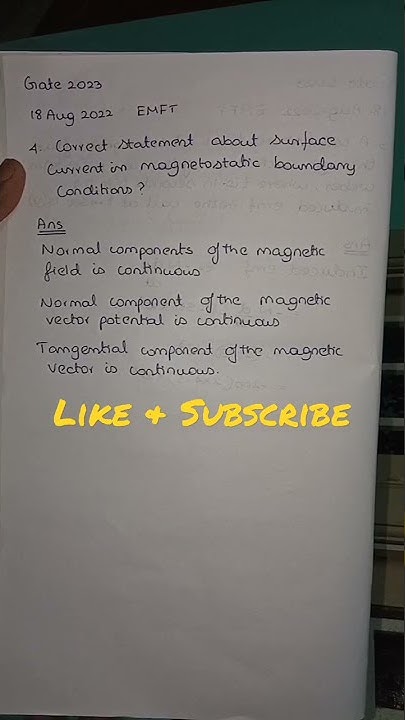 Gate 2023
18 Aug 2022 EMFT
4. Correct statement about surface
Current in magnetostatic boundary
Conditions?
Ans
Normal components of the magnetic
field is continuous
Normal component of the magnetic
vector potential is continuous
Tangential component of the magnetic
vector is continuous.
LIKE & SUBSCRIBE